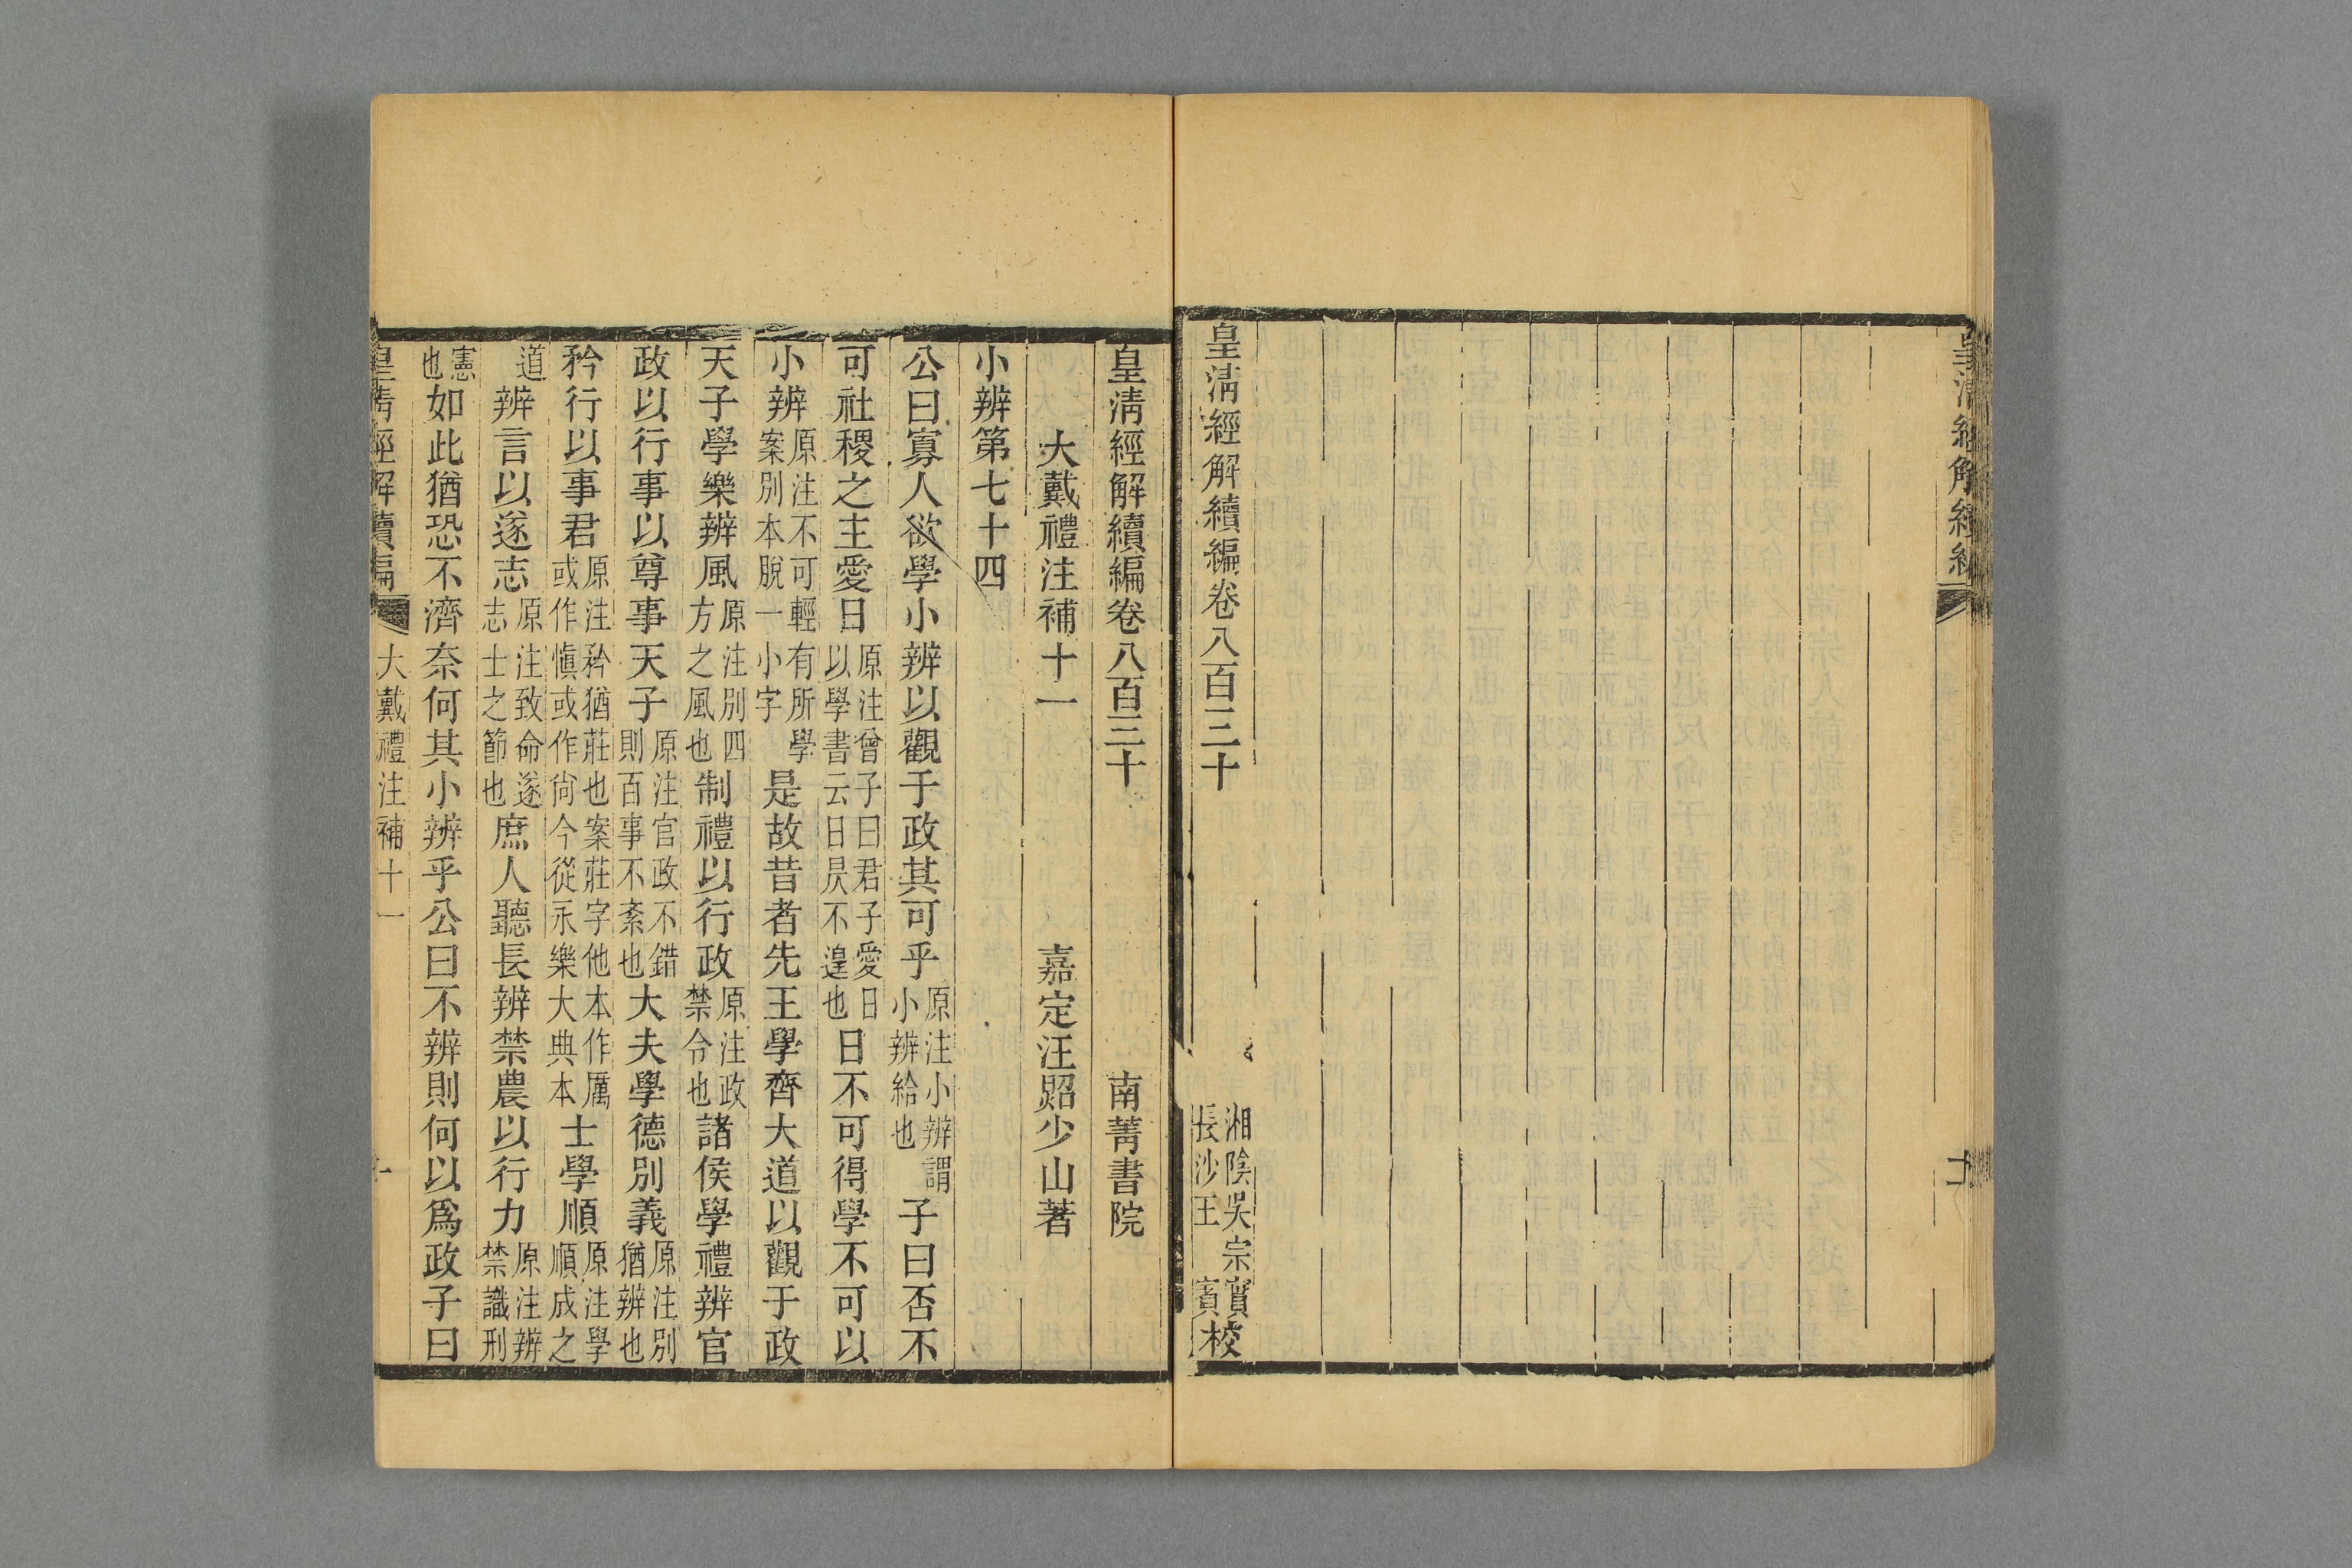 皇清經解續編
皇清經解續編卷八百三十
湘陰吳宗實
長沙王 賓校
皇清經解續編卷八百三十 南菁書院
大戴禮注補十一 嘉定汪照少山著
小辨第七十四
公曰寡人欲學小辨以觀于政其可乎原注小辨謂小辨給也子曰否不
可社稷之主愛日原注曾子曰君子愛日以學書云日昃不遑也日不可得學不可以
小辨原注不可輕有所學案別本脫一小字是故昔者先王學齊大道以觀于政
天子學樂辨風原注別四方之風也制禮以行政原注政禁令也諸侯學禮辨官
政以行事以尊事天子原注官政不錯則百事不紊也大夫學德別義原注別猶辨也
矜行以事君原注矜猶莊也案莊字他本作厲或作愼或作尙今從永樂大典本士學順原注學順成之
道辨言以遂志原注致命遂志士之節也庶人聽長辨禁農以行力原注辨禁識刑
憲也如此猶恐不濟奈何其小辨乎公曰不辨則何以爲政子曰
皇清經解續編 大戴禮注補十一